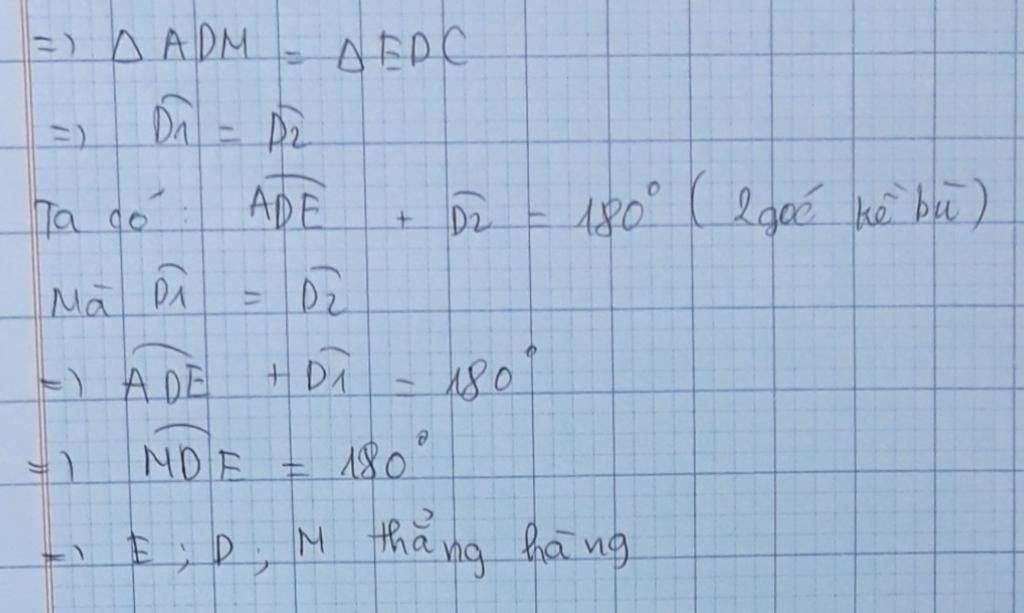 => Δ ADM = Δ EDC
=> D̂1 = D̂2
Ta có: ADE + D̂2 = 180° ( 2 góc kề bù )
Mà D̂1 = D̂2
=> ADE + D̂1 = 180°
=> MDE = 180°
=> E ; D ; M thẳng hàng